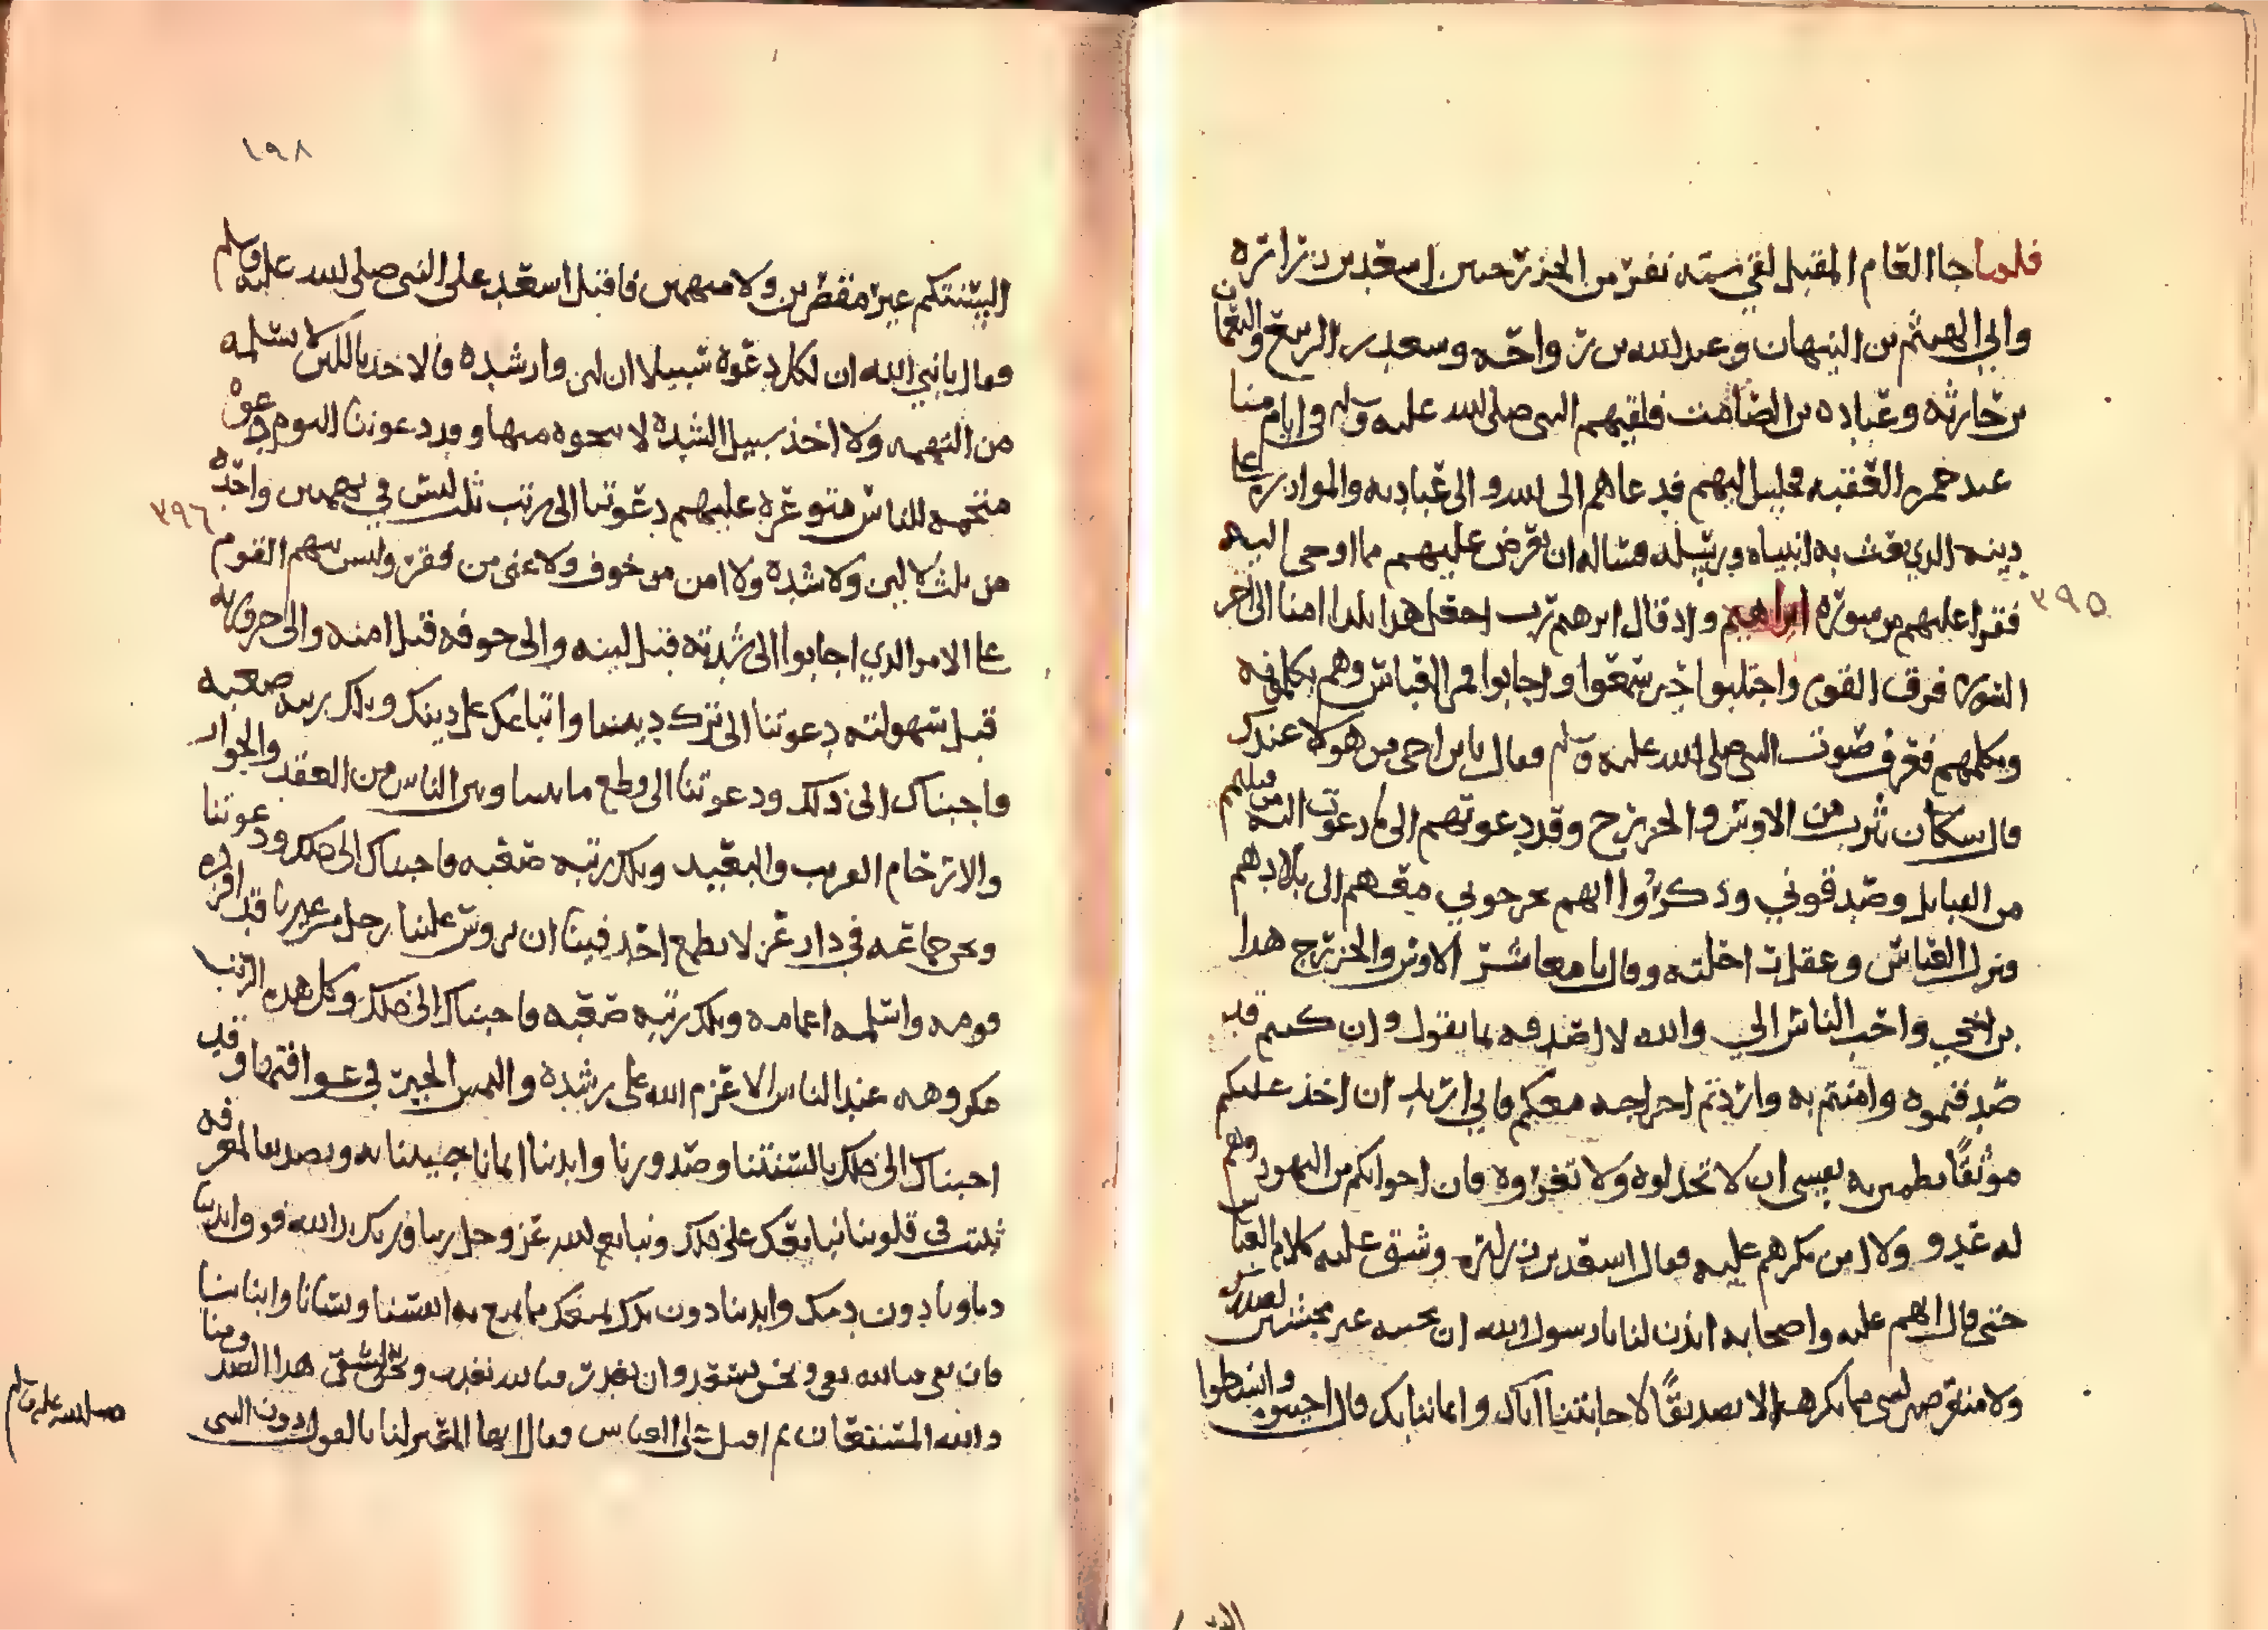 فلما جا العام المقبل لقي ستة نفر من الخزرج حسن اسعد بن زرارة
وابي الهيثم بن التيهان وعبد الله بن رواحه وسعد بن الربيع والنعمان
بن حارثه وعباده بن الصامت فلقيهم النبي صلى الله عليه وسلم في ايام منا
عند جمره العقبه فجلس اليهم فدعاهم الى الله والى عبادته والموازره على
دينه الذي بعث به انبياه ورسله فسالوه ان يعرض عليهم مما اوحى اليه
٣٩٥
فقرا عليهم من سورة ابراهيم واذ قال ابرهيم رب اجعل هذا بلدا امنا الى اخر
السوره فرق القوم واخبتوا حين سمعوا واجابوا فمر العباس وهم يكلمونه
ويكلمهم فعرف صوت النبي صلى الله عليه وسلم فقال يا بن اخي من هولا عندك
قال سكان يثرب من الاوس والخزرج وقد دعوتهم الى ما دعوت اليه من قبلهم
من القبايل وصدقوني وذكروا انهم يخرجوني معهم الى بلادهم
فنزل العباس وعقل راحلته وقال يا معاشر الاوس والخزرج هذا
بن اخي واحب الناس الي والله لا اصدقه بما يقول وان كنتم قد
صدقتموه وامنتم به واردتم اخراجه معكم فاني اريد ان اخذ عليكم
موثقًا تطمين به نفسي ان لا تخذلوه ولا تغروه فان اخوانكم من اليهود وهم
له عدو ولا امن مكرهم عليه فقال اسعد بن زرارة وشق عليه كلام العباس
حتى قال اتهم عليه واصحابه ايذن لنا يا رسول الله ان نجيبه غير مخشنين لصدرك
ولا متعرضين لشي مما تكرهه الا تصديقًا لاجابتنا اياك وايماننا بك قال اجيبوه وابسطوا
١٩٨
السنتكم غير مقصرين ولا متهمين فاقبل اسعد على النبي صلى الله عليه وسلم
وقال يا نبي الله ان لكل دعوة سبيلا ان لين وان شده فالاخذ باللين لا يسلمه
من التهمه ولا اخذ سبيل الشده لا ينجوه منها وقد دعوتنا اليوم دعوة
منجهمه للناس متوعرة عليهم دعوتنا الى رتب ثلث ليس في بهمهن واحدة
٣٩٦
من ثلث لا لين ولا شده ولا امن من خوف ولا غنى من فقر وليس يتهم القوم
على الامر الذي اجابوا الى شدته قبل لينه والى خوفه قبل امنه والى حزونته
قبل سهولته دعوتنا الى ترك ديننا واتباعك على دينك وتلك رتبه صعبه
فاجبناك الى ذلك ودعوتنا الى قطع ما بيننا وبين الناس من العقد والجوار
والارحام القريب والبعيد وتلك رتبه صعبه فاجبناك الى ذلك ودعوتنا
ونحن جماعه في دار عز لا يطمع احد فينا ان يروس علينا رجل من غيرنا قد افرده
قومه واسلمه اعمامه وتلك رتبه صعبه فاجبناك الى ذلك وكل هذه الرتب
مكروهه عند الناس الا عزم الله على رشده والتمس الخير في عواقبها وقد
اجبناك الى ذلك بالسنتنا وصدورنا وايدينا ايمانا جيتنا به وتصديقا لمعرفه
ثبتت في قلوبنا نبايعك على ذلك ونبايع لله عز وجل ربنا وربك يد الله فوق ايدينا
دماونا دون دمك وايدينا دون يدك نمنعك مما نمنع به انفسنا ونسانا وابنانا
فان نفي فبالله نفي ونحن نسعد وان نغدر فبالله نغدر ونحن نشقى هذا الصدق منا
والله المستعان ثم اقبل على العباس وقال ايها المعترض لنا بالقول دون النبي
صلى الله عليه وسلم